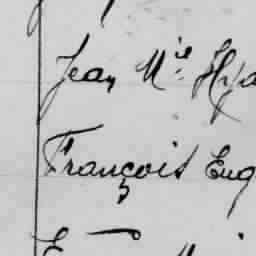 Jean M.ie Hya
François Eug